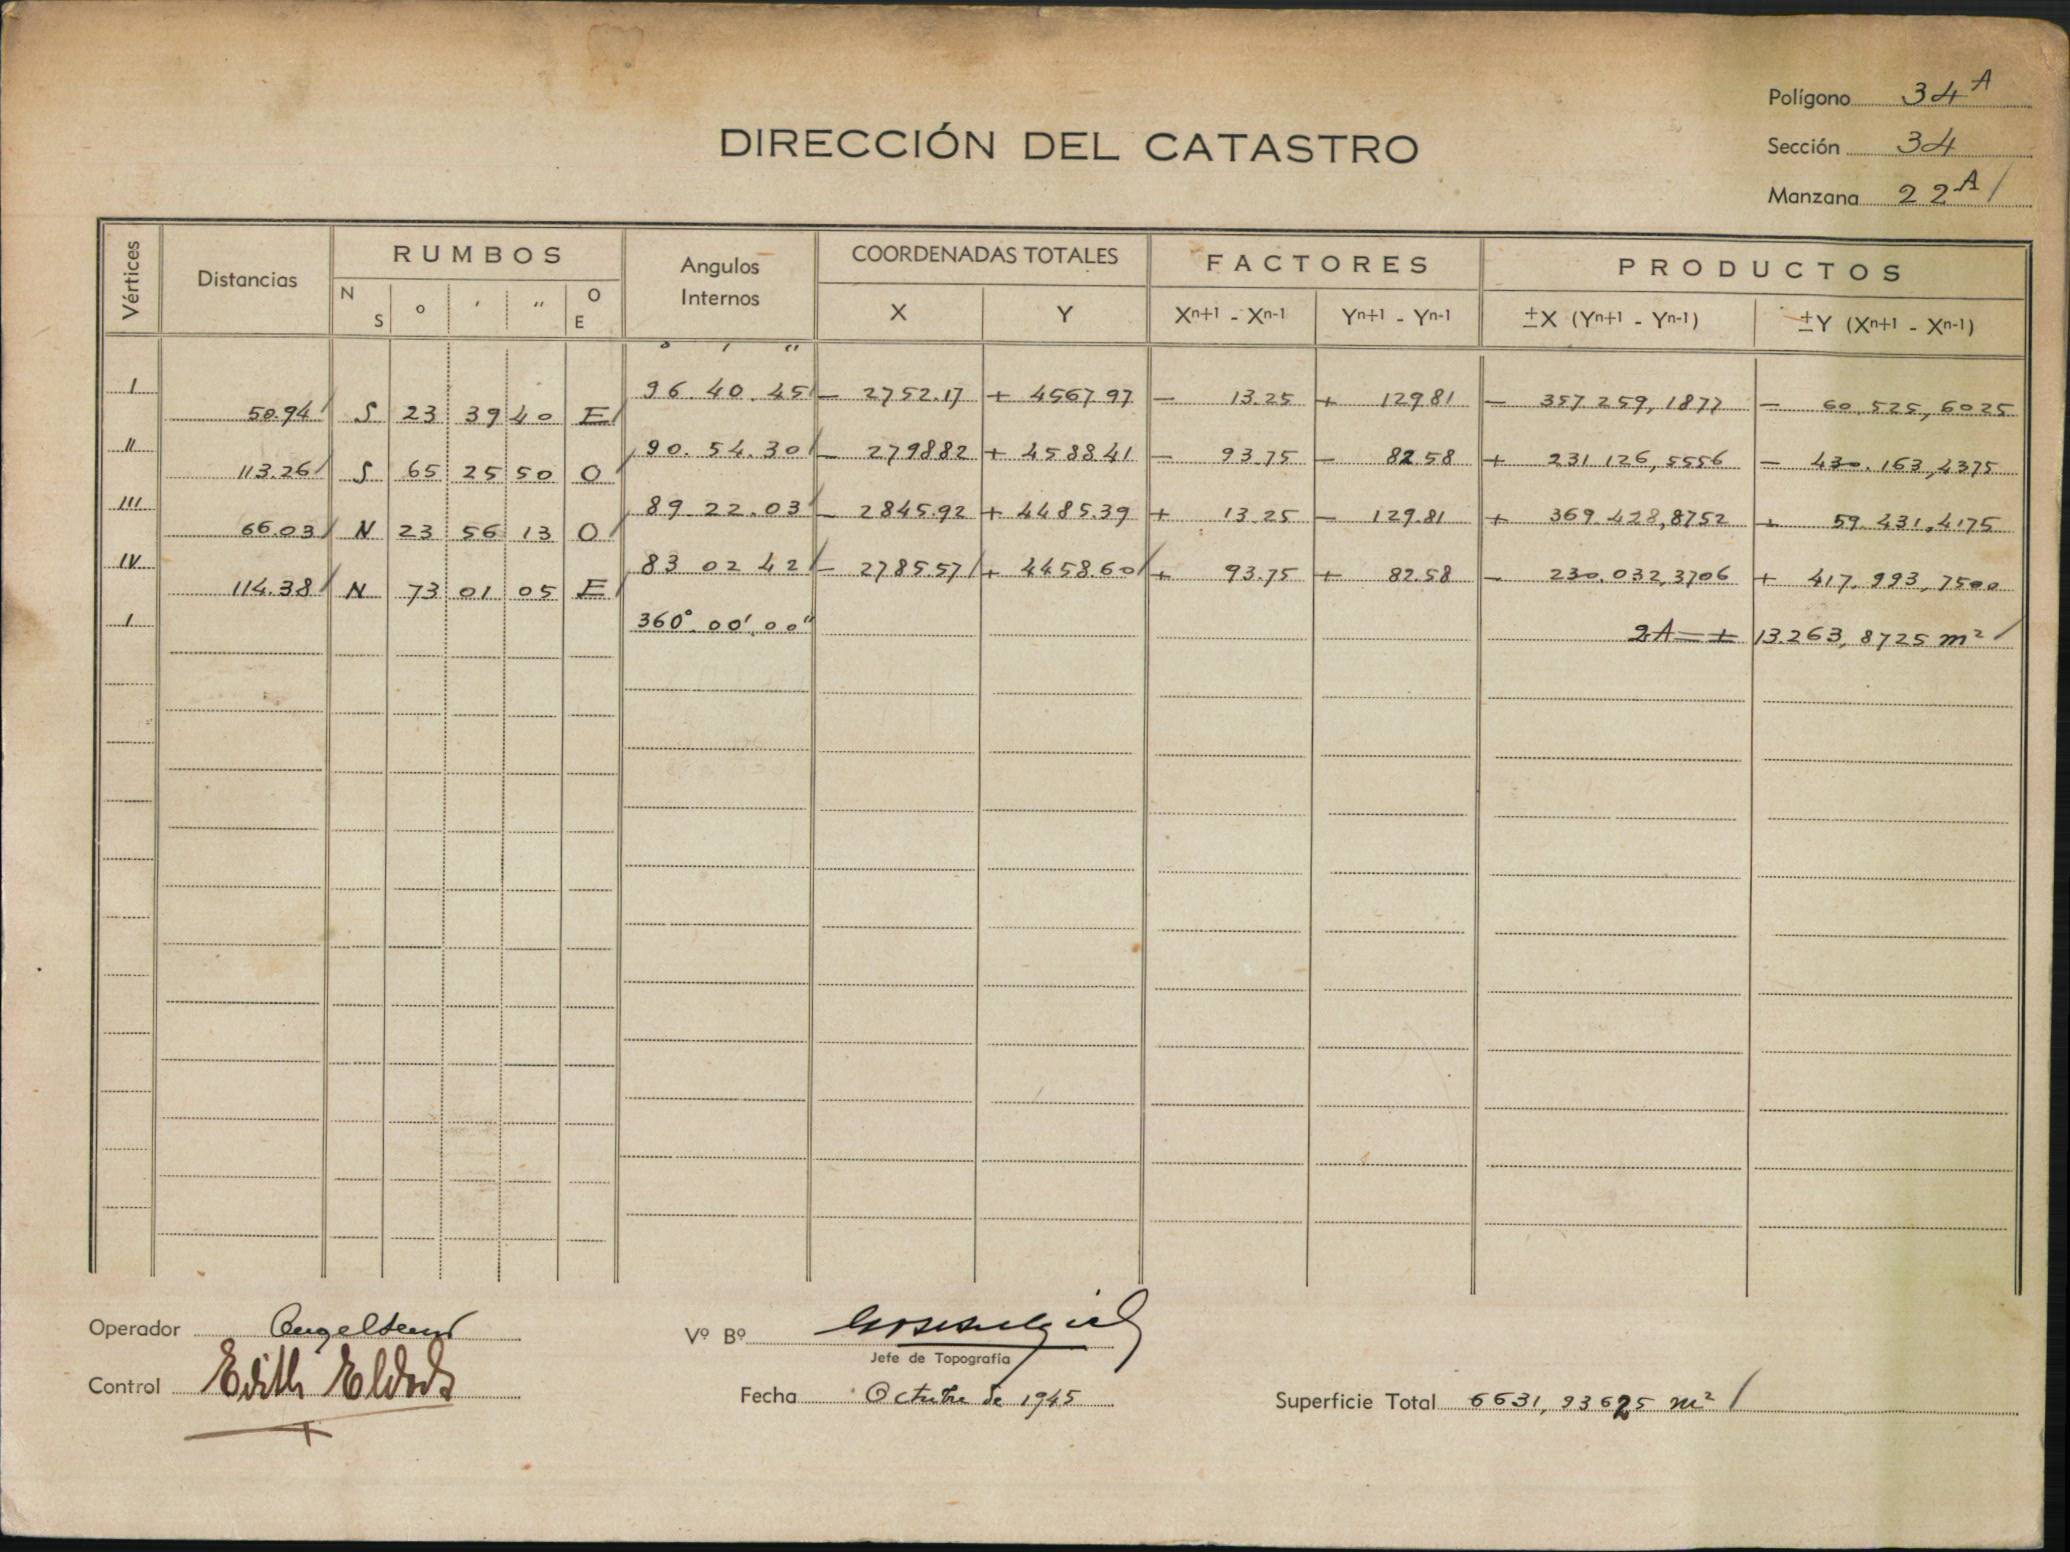 Polígono 34 A
DIRECCIÓN DEL CATASTRO
Sección 34
Manzana 22 A /
Vértices Distancias RUMBOS Angulos Internos COORDENADAS TOTALES FACTORES PRODUCTOS
N S ° ' " O E X Y Xn+1 - Xn-1 Yn+1 - Yn-1 ±X (Yn+1 - Yn-1) ±Y (Xn+1 - Xn-1)
° ' "
I 96 40 45 - 2752.17 + 4567.97 - 13.25 + 129.81 - 357 259,1877 - 60.525,6025
50.94 S 23 39 40 E
II 90. 54. 30 - 2798 82 + 4588.41 - 93.75 - 82.58 + 231 126,5556 - 430.163,4375
113.26 S 65 25 50 O
III 89 22.03 - 2845.92 + 4485.39 + 13.25 - 129.81 + 369 428,8752 + 59.431,4175
66.03 N 23 56 13 O
IV 83 02 42 - 2785.57 + 4458.60 + 93.75 + 82.58 - 230.032,3706 + 417.993,7500
114.38 N 73 01 05 E
I 360° 00' 00" 2A = + 13.263,8725 m² /
Operador
Vº Bº
Jefe de Topografía
Control Edith
Fecha Octubre de 1945
Superficie Total 6631,93625 m² /